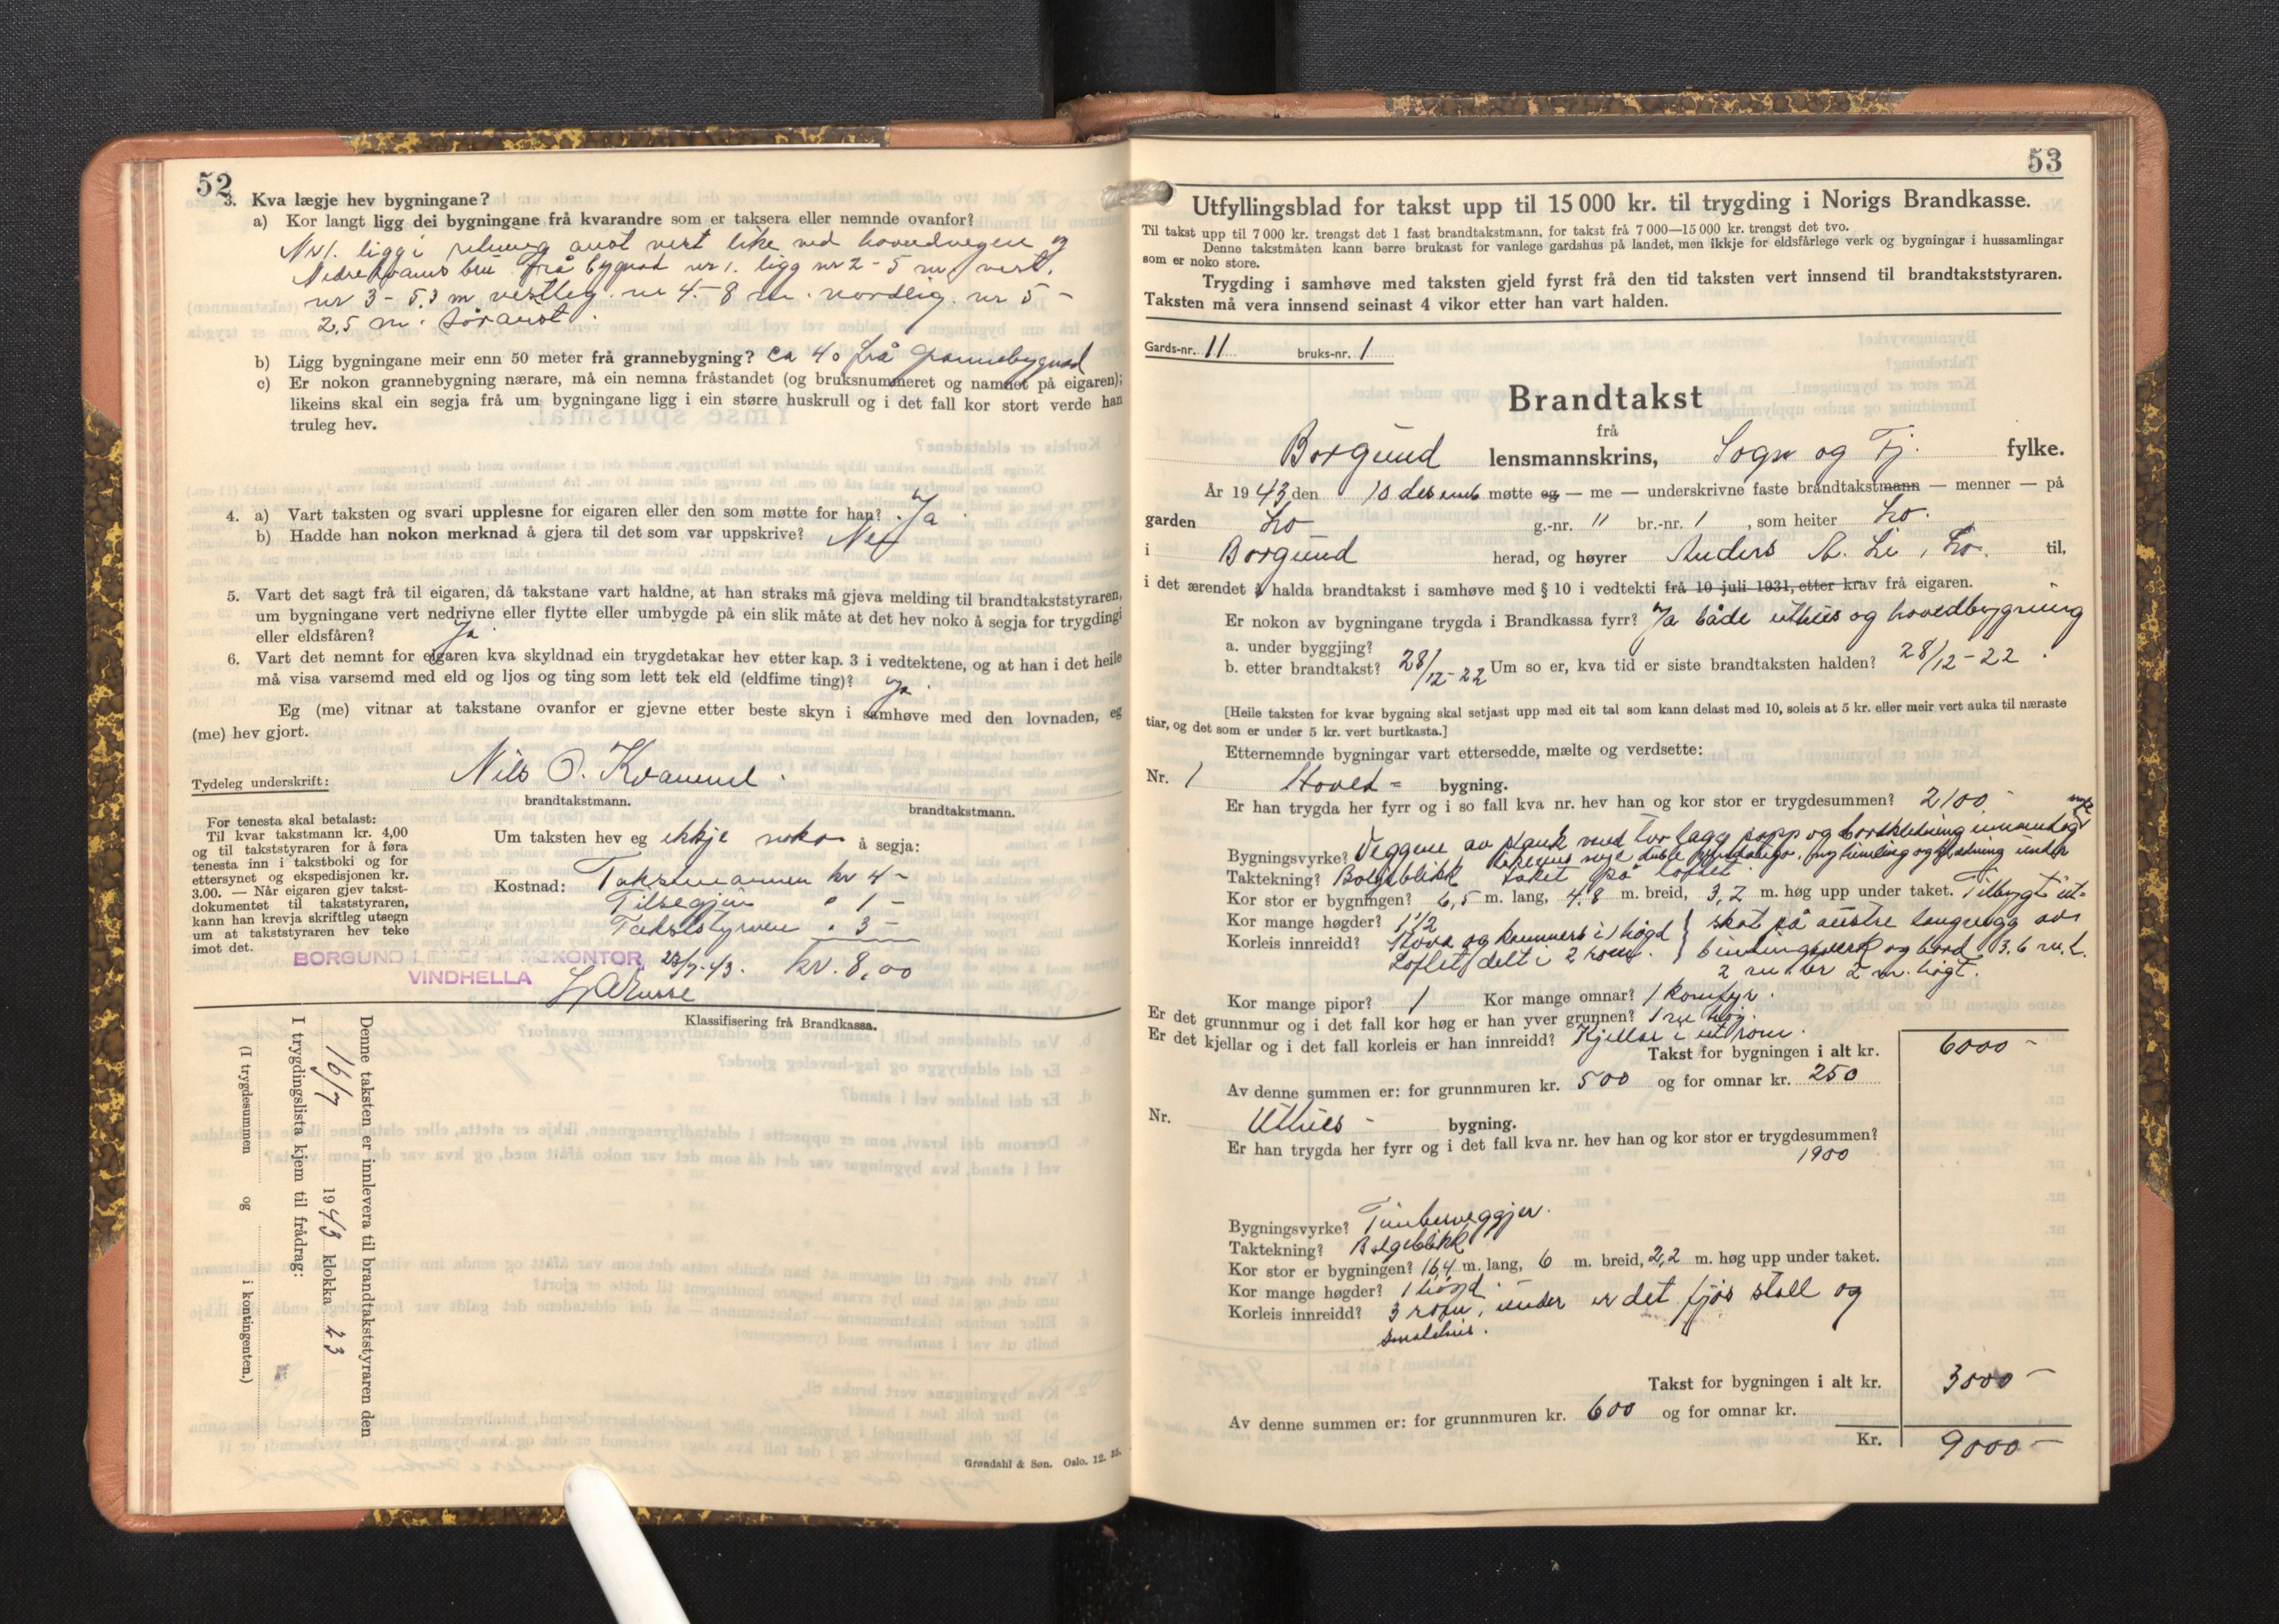 52
3. Kva lægje hev bygningane?
a) Kor langt ligg dei bygningane frå kvarandre som er taksera eller nemnde ovanfor?
Nr 1. ligg i aust vert like ved hovudvegen og
Nedre Kvams bru. Frå bygnad nr 1. ligg nr 2 - 5 m vest,
nr 3 - 5,3 m vestleg. nr 4. - 8 m. nordlig. nr 5 -
2,5 m. søraust.
b) Ligg bygningane meir enn 50 meter frå grannebygning? ca 40 frå grannebygnad
c) Er nokon grannebygning nærare, må ein nemna fråstandet (og bruksnummeret og namnet på eigaren);
likeins skal ein segja frå um bygningane ligg i ein større huskrull og i det fall kor stort verde han
truleg hev.
4. a) Vart taksten og svari upplesne for eigaren eller den som møtte for han? Ja.
b) Hadde han nokon merknad å gjera til det som var uppskrive? Nei
5. Vart det sagt frå til eigaren, då takstane vart haldne, at han straks må gjeva melding til brandtakststyraren,
um bygningane vert nedrivne eller flytte eller umbygde på ein slik måte at det hev noko å segja for trygdingi
eller eldsfåren? Ja.
6. Vart det nemnt for eigaren kva skyldnad ein trygdetakar hev etter kap. 3 i vedtektene, og at han i det heile
må visa varsemd med eld og ljos og ting som lett tek eld (eldfime ting)? Ja.
Eg (me) vitnar at takstane ovanfor er gjevne etter beste skyn i samhøve med den lovnaden, eg
(me) hev gjort.
Tydeleg underskrift: Nils O. Kvamme.
brandtakstmann. brandtakstmann.
For tenesta skal betalast:
Til kvar takstmann kr. 4,00
og til takststyraren for å føra
tenesta inn i takstboki og for
ettersynet og ekspedisjonen kr.
3.00. — Når eigaren gjev takst-
dokumentet til takststyraren,
kann han krevja skriftleg utsegn
um at takststyraren hev teke
imot det.
Um taksten hev eg ikkje noko å segja:
Kostnad: Takstmannen kr 4 -
Tilsegjin " 1 -
Takststyraren " 3 -
BORGUND KONTOR 23/7-43. kr. 8,00
VINDHELLA
Klassifisering frå Brandkassa.
Denne taksten er innlevera til brandtakststyraren den
16/7 1943 klokka 23
I trygdingslista kjem til frådrag:
(I trygdesummen og i kontingenten.)
Grøndahl & Søn. Oslo. 12.
53
Utfyllingsblad for takst upp til 15 000 kr. til trygding i Norigs Brandkasse.
Til takst upp til 7 000 kr. trengst det 1 fast brandtakstmann, for takst frå 7 000—15 000 kr. trengst det tvo.
Denne takstmåten kann berre brukast for vanlege gardshus på landet, men ikkje for eldsfårlege verk og bygningar i hussamlingar
som er noko store.
Trygding i samhøve med taksten gjeld fyrst frå den tid taksten vert innsend til brandtakststyraren.
Taksten må vera innsend seinast 4 vikor etter han vart halden.
Gards-nr. 11 bruks-nr. 1
Brandtakst
frå
Borgund lensmannskrins, Sogn og Fj. fylke.
År 1943 den 10 desemb møtte eg — me — underskrivne faste brandtakstmann — menner — på
garden Lo g.-nr. 11 br.-nr. 1, som heiter Lo.
i Borgund herad, og høyrer Anders A. Li, Lo. til,
i det ærendet å halda brandtakst i samhøve med § 10 i vedtekti frå 10 juli 1931, etter krav frå eigaren.
Er nokon av bygningane trygda i Brandkassa fyrr? Ja både uthus og hovedbygning
a. under byggjing?
b. etter brandtakst? 28/12-22 Um so er, kva tid er siste brandtaksten halden? 28/12-22.
[Heile taksten for kvar bygning skal setjast upp med eit tal som kann delast med 10, soleis at 5 kr. eller meir vert auka til næraste
tiar, og det som er under 5 kr. vert burtkasta.]
Etternemnde bygningar vart ettersedde, mælte og verdsette:
Nr. 1 Hoved- bygning.
Er han trygda her fyrr og i so fall kva nr. hev han og kor stor er trygdesummen? 2100 -
Bygningsvyrke? Veggene av plank med papp og bordkledning
Taktekning? Bølgeblikk taket på loftet
Kor stor er bygningen? 6,5 m. lang, 4,8 m. breid, 3,2 m. høg upp under taket. Tilbygt ut-
Kor mange høgder? 1 1/2 skot på austre langvegg av
Korleis innreidd? Stova og kammers i 1 høgd bindingsverk og bord 3.6 m. l.
Loftet delt i 2 rom. 2 m. br 2 m. høgt.
Kor mange pipor? 1 Kor mange omnar? 1 komfyr.
Er det grunnmur og i det fall kor høg er han yver grunnen? 1 m høg.
Er det kjellar og i det fall korleis er han innreidd? Kjellar i eit rom.
Takst for bygningen i alt kr. 6000 -
Av denne summen er: for grunnmuren kr. 500 og for omnar kr. 250
Nr. Uthus - bygning.
Er han trygda her fyrr og i det fall kva nr. hev han og kor stor er trygdesummen?
1900
Bygningsvyrke? Timberveggjer.
Taktekning? Bølgeblikk
Kor stor er bygningen? 16,4 m. lang, 6 m. breid, 2,2 m. høg upp under taket.
Kor mange høgder? 1 høgd.
Korleis innreidd? 3 rom, under er det fjøs stall og
smalehus.
Takst for bygningen i alt kr. 3000 -
Av denne summen er: for grunnmuren kr. 600 og for omnar kr.
Kr. 9000 -